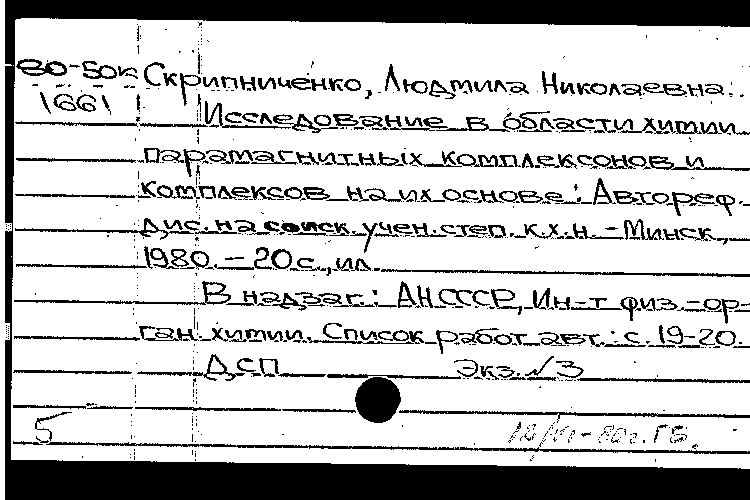 80-50к Скрипниченко, Людмила Николаевна.
1661 Исследование в области химии
парамагнитных комплексонов и
комплексов на их основе : Автореф.
дис. на соиск. учен. степ. к.х.н. - Минск,
1980. - 20 с., ил.
В надзаг.: АН СССР, Ин-т физ.-ор-
ган. химии. Список работ авт.: с. 19-20.
ДСП Экз. № 3
5